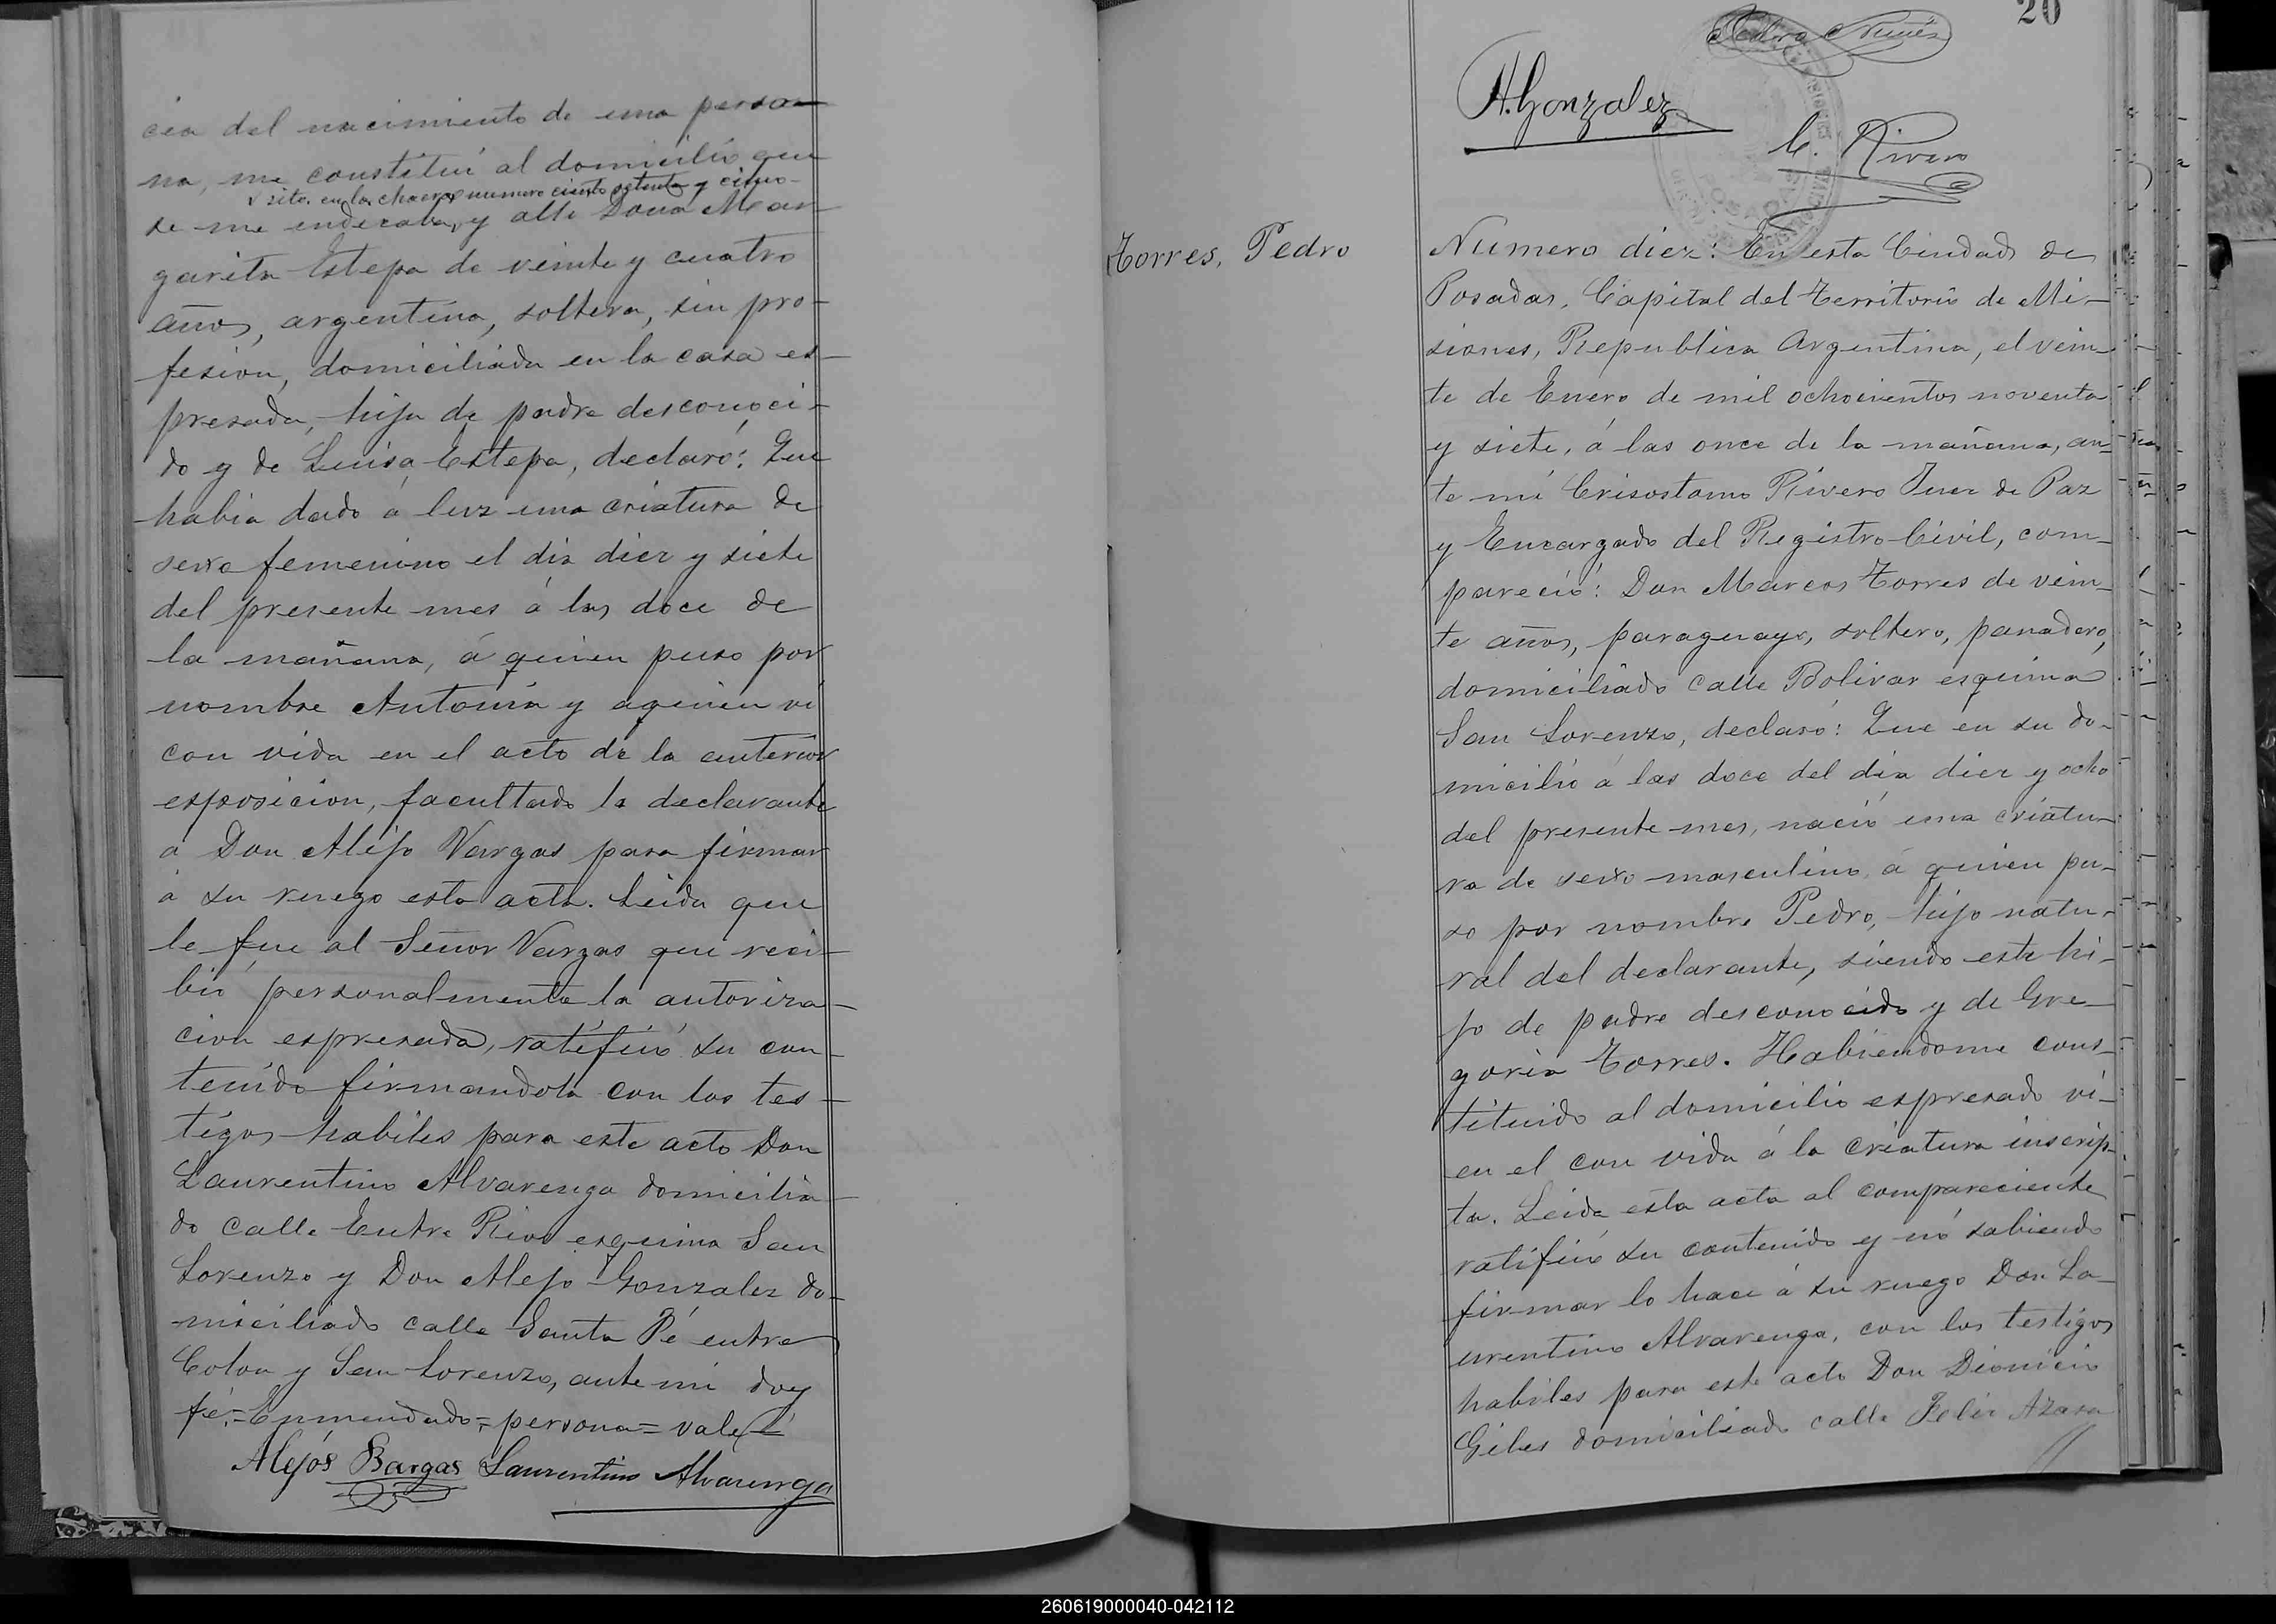 cia del nacimiento de una perso-
na, me constituí al domicilio que
sito en la chacra numero ciento setenta y cinco
se me indicaba, y alli Doña Mar-
garita Estepa de veinte y cuatro
años, argentina, soltera, sin pro-
fesion, domiciliada en la casa es-
presada, hija de padre desconoci-
do y de Luisa Estepa, declaró: Que
habia dado á luz una criatura de
sexo femenino el dia diez y siete
del presente mes á las doce de
la mañana, á quien puso por
nombre Antonia y aquien ví
con vida en el acto de la anterior
esposicion, facultado la declarante
á Don Alejo Vargas para firmar
á su ruego esta acta. Leida que
le fue al Señor Vargas que reci-
bió personalmente la autoriza-
cion espresada, ratificó su con-
tenido firmandola con los tes-
tigos habiles para este acto Don
Laurentino Alvarenga domicilia-
do calle Entre Rios esquina San
Lorenzo y Don Alejo Gonzalez do-
miciliado calle Santa Fé entre
Colon y San Lorenzo, ante mi doy
fé.=Enmendado=persona=vale
Alejós Bargas Laurentino Alvarenga
20
Pedro Nuñes
A. Gonzalez
C. Rivero
POSADAS
Torres, Pedro
Numero diez: En esta Ciudad de
Posadas, Capital del Territorio de Mi-
siones, Republica Argentina, el vein-
te de Enero de mil ochocientos noventa
y siete, á las once de la mañana, an-
te mí Crisostomo Rivero Juez de Paz
y Encargado del Registro Civil, com-
pareció: Don Marcos Torres de vein-
te años, paraguayo, soltero, panadero,
domiciliado calle Bolivar esquina
San Lorenzo, declaró: Que en su do-
micilio á las doce del dia diez y ocho
del presente mes, nació una criatu-
ra de sexo masculino, á quien pu-
so por nombre Pedro, hijo natu-
ral del declarante, siendo este hi-
jo de padre desconocido y de Gre-
goria Torres. Habiendome cons-
tituido al domicilio espresado ví-
en el con vida á la criatura inscrip-
ta. Leida esta acta al compareciente
ratificó su contenido y nó sabiendo
firmar lo hace á su ruego Don La-
urentino Alvarenga, con los testigos
habiles para este acto Don Dionicio
Giles domiciliado calle Felix Azara
260619000040-042112